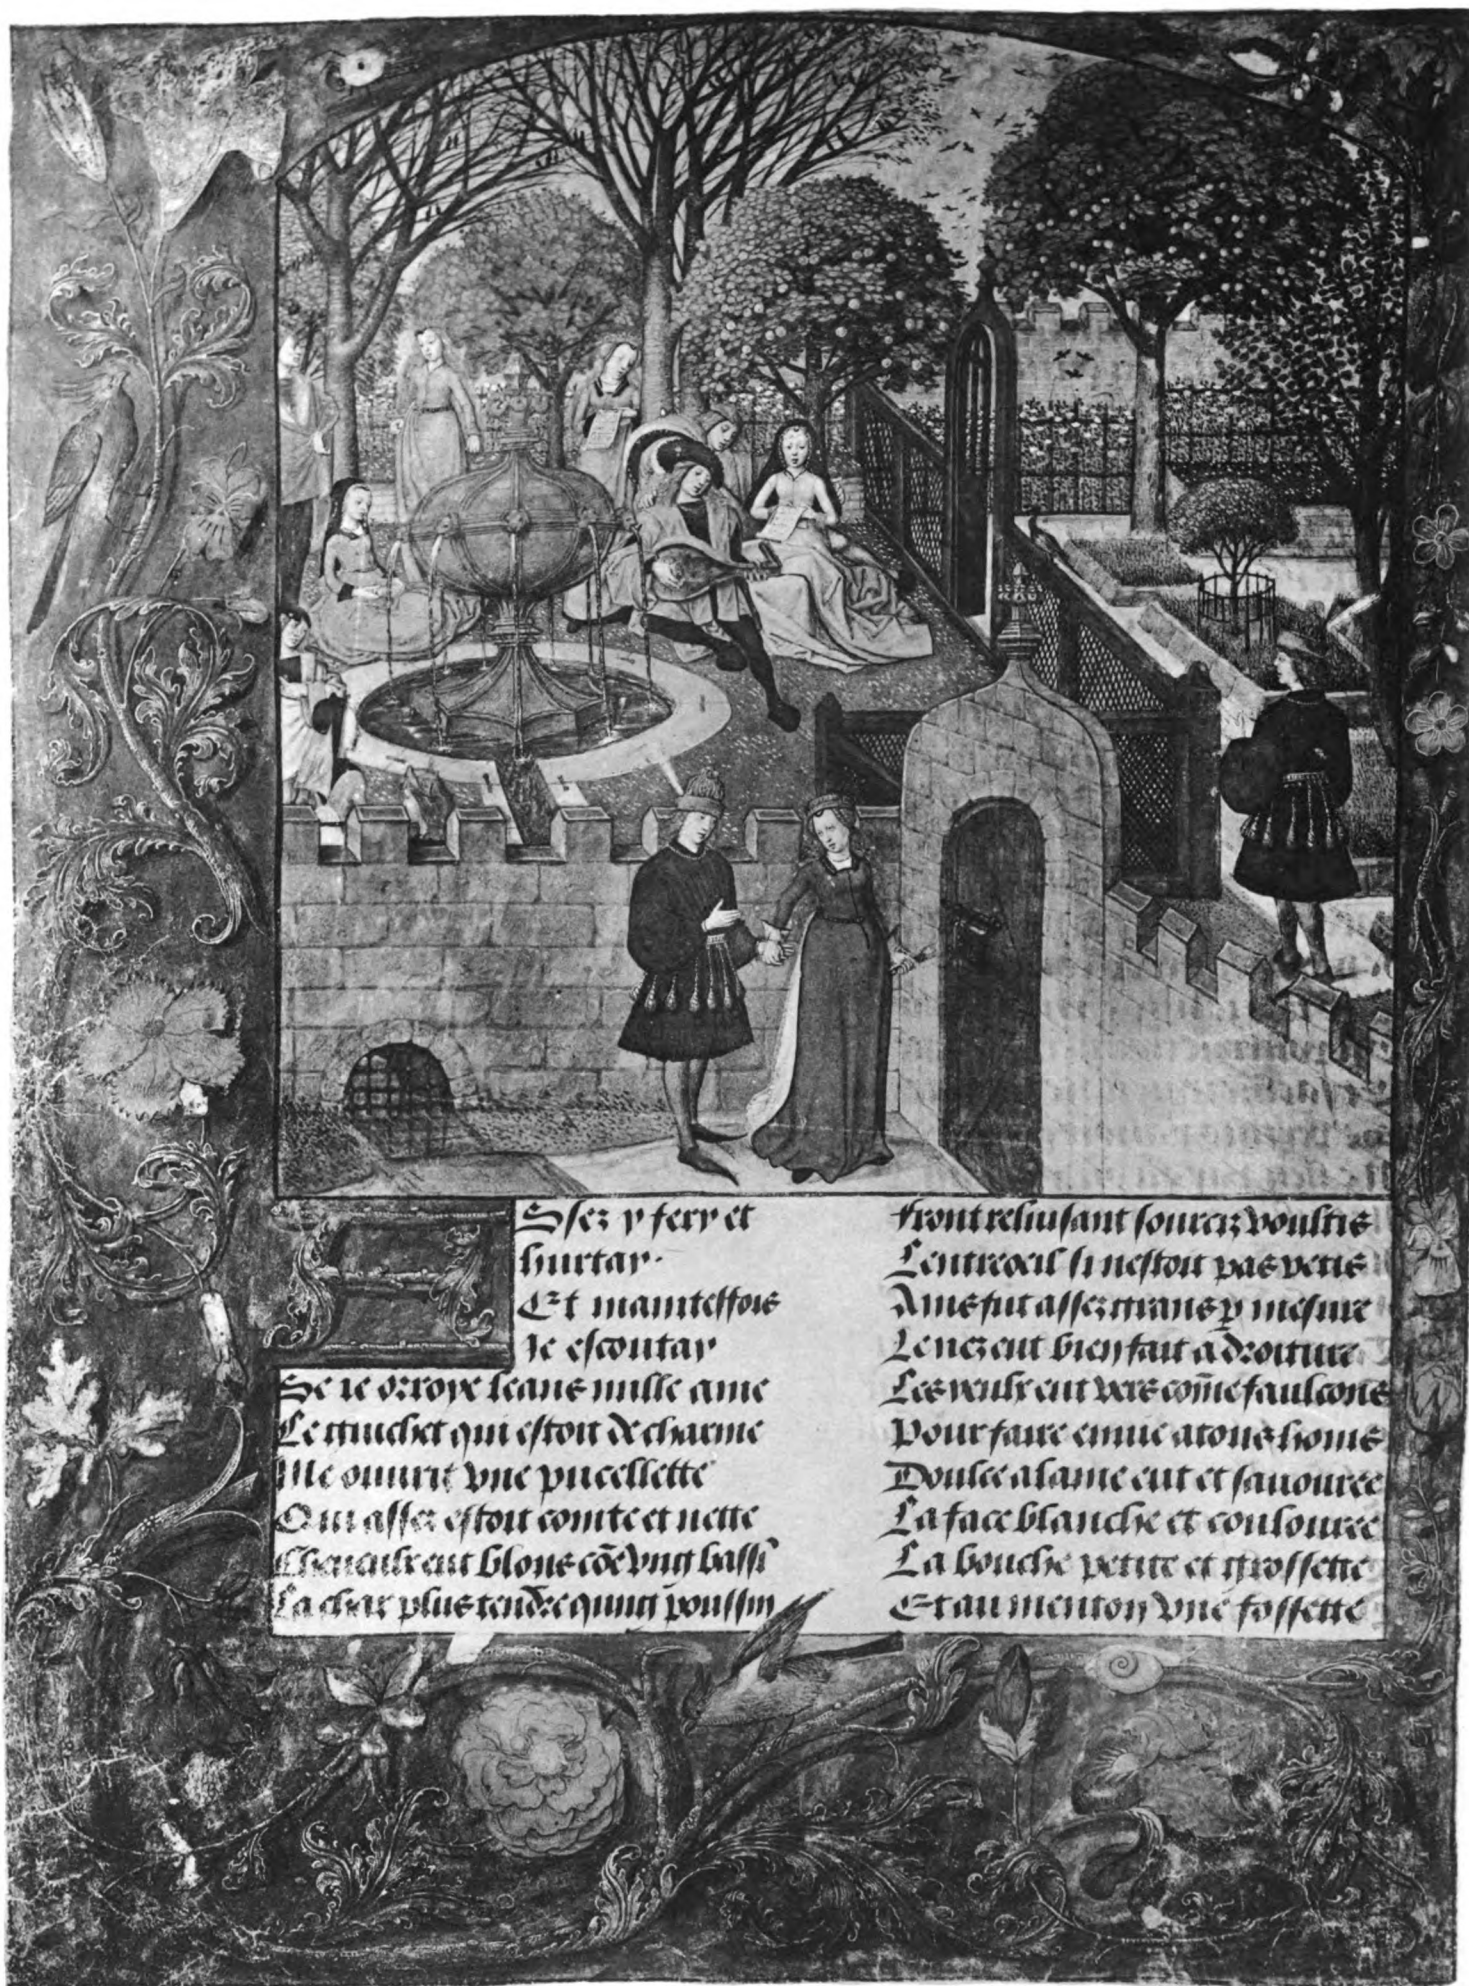 Assez y fery et
hurtay.
Et maintesfois
Je escoutay
Se je orroye leans nulle ame
Le guichet qui estoit de charme
Me ouurit vne pucellette
Qui assez estoit cointe et nette
Cheueulx eut blons cōe vng bassī
La char plus tendre quung poussin
Front reluisant sourcız voultis
Lentreoeil si nestoit pas petis
Ains fut assez grans p̱ mesure
Le nez eut bien fait a droiture
Les yeulx eut vers cōme faulcons
Pour faire enuie a tous homs
Doulce alaine eut et sauouree
La face blanche et coulouree
La bouche petite et grossette
Et au menton vne fossette